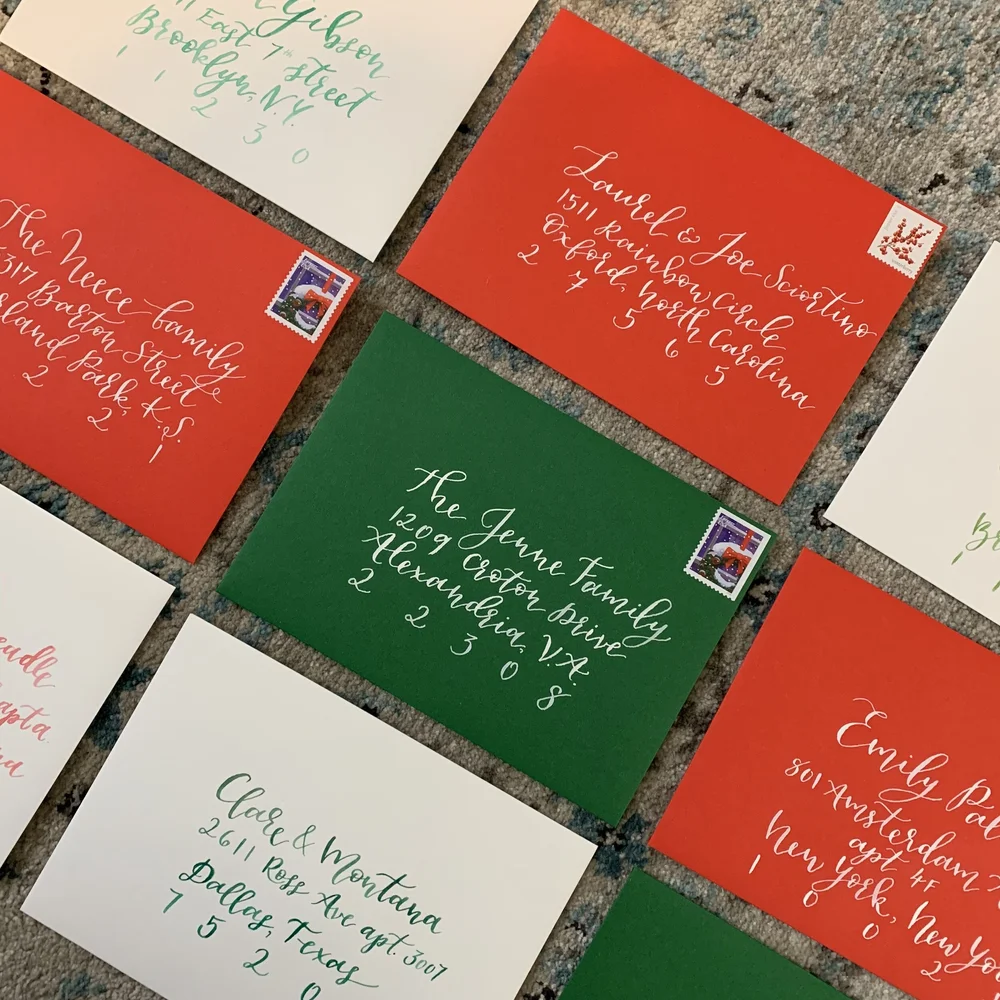 Gibson
East 7th Street
Brooklyn, N.Y.
1 1 2 3 0
Laurel & Joe Sciortino
1511 Rainbow Circle
Oxford, North Carolina
2 7 5 6 5
The Neece family
5317 Barton Street
Park, K.S.
2 2 1
The Jenne Family
1209 Croton Drive
Alexandria, V.A.
2 2 3 0 8
Clare & Montana
2611 Ross Ave apt. 3007
Dallas, Texas
7 5 2 0
Emily
801 Amsterdam
apt 4F
New York, New Yo
1 0 0 2